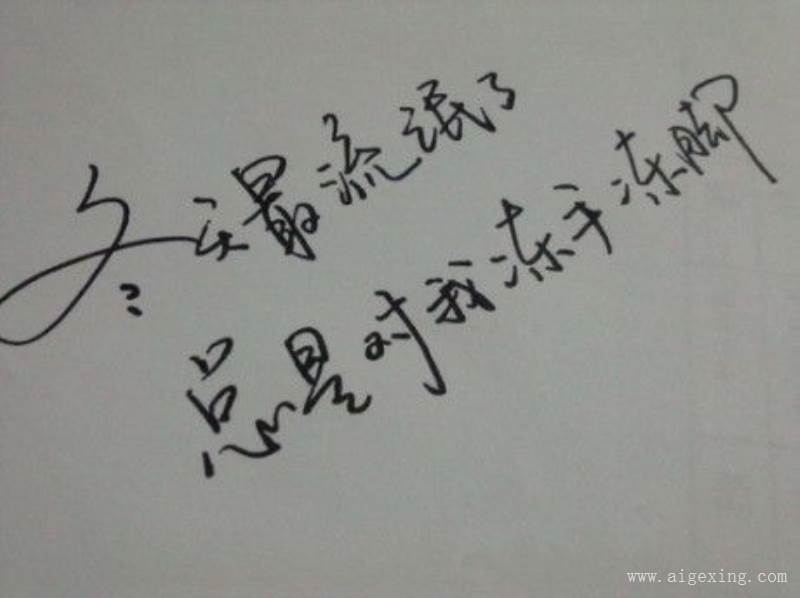 冬天最流氓了
总是对我冻手冻脚
www.aigexing.com